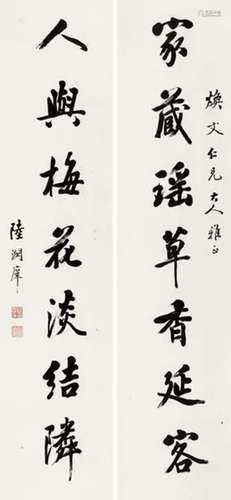 煥文仁兄大人雅正
家藏瑶草香延客
人與梅花淡結隣
陸潤庠